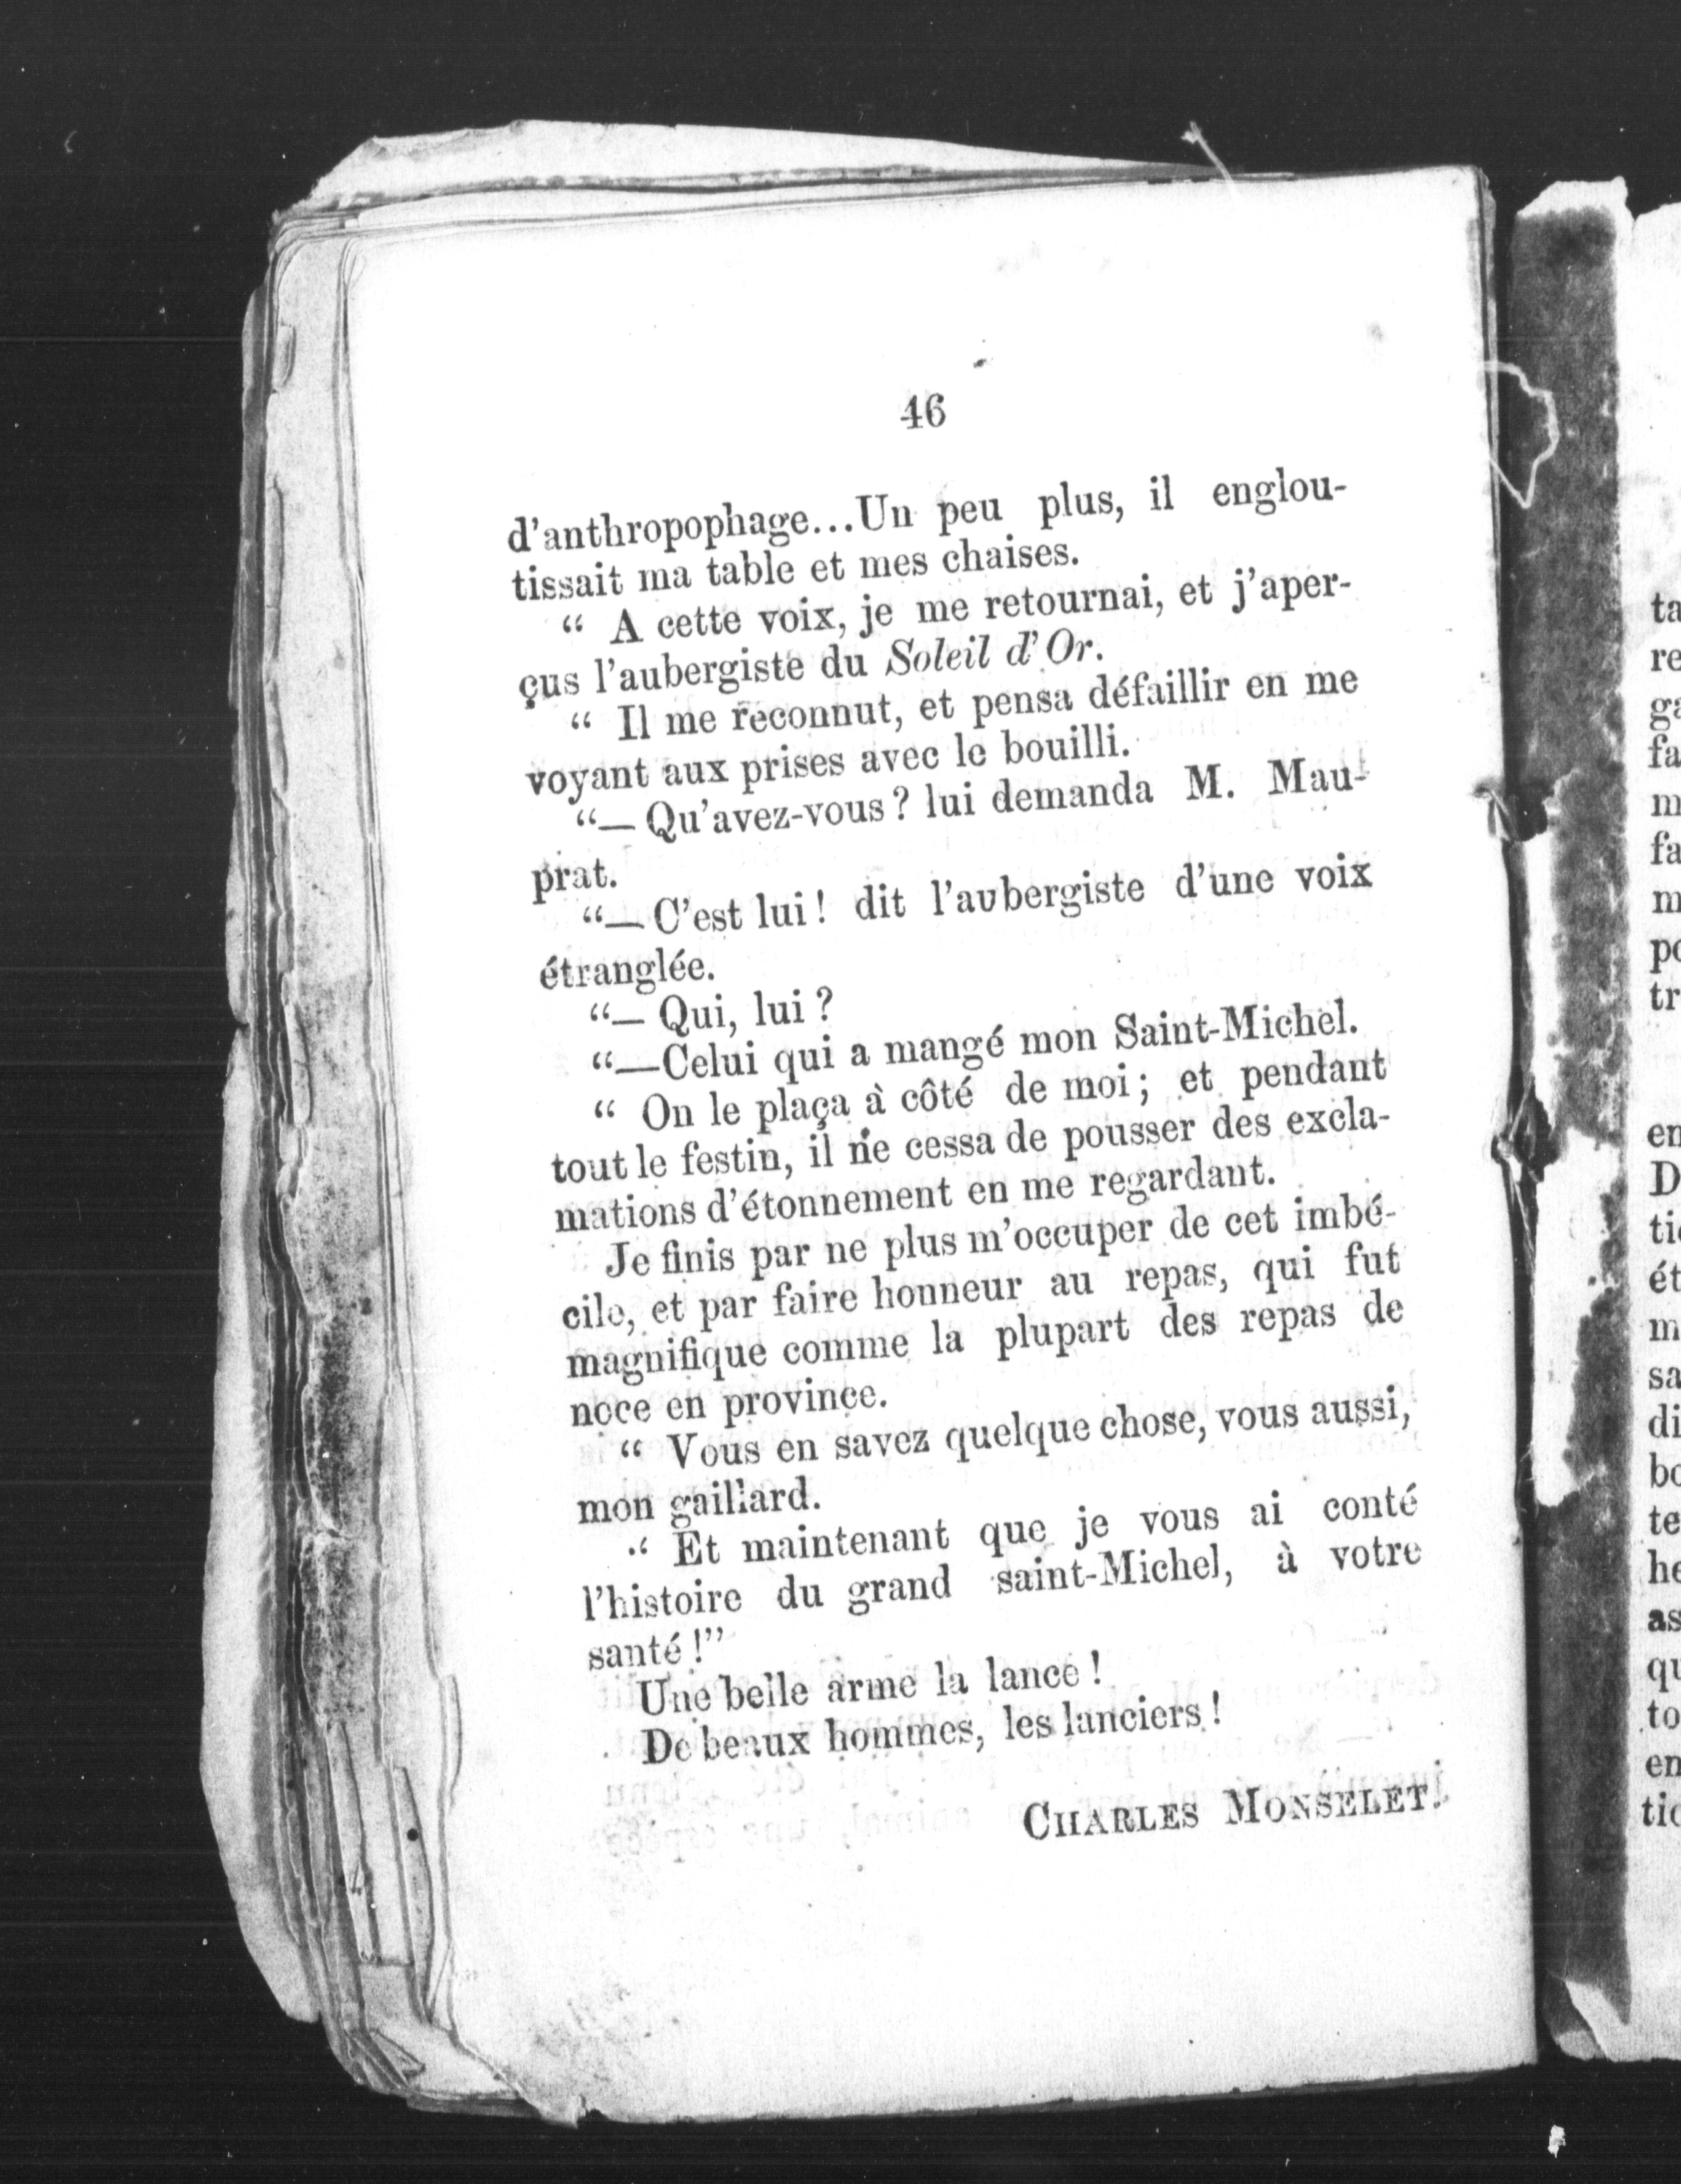 46
d'anthropophage...Un peu plus, il englou-
tissait ma table et mes chaises.
“ A cette voix, je me retournai, et j'aper-
çus l'aubergiste du Soleil d'Or.
“ Il me reconnut, et pensa défaillir en me
voyant aux prises avec le bouilli.
“— Qu'avez-vous ? lui demanda M. Mau-
prat.
“— C'est lui ! dit l'aubergiste d'une voix
étranglée.
“— Qui, lui ?
“—Celui qui a mangé mon Saint-Michel.
“ On le plaça à côté de moi ; et pendant
tout le festin, il ne cessa de pousser des excla-
mations d'étonnement en me regardant.
Je finis par ne plus m'occuper de cet imbé-
cile, et par faire honneur au repas, qui fut
magnifique comme la plupart des repas de
noce en province.
“ Vous en savez quelque chose, vous aussi,
mon gaillard.
“ Et maintenant que je vous ai conté
l'histoire du grand saint-Michel, à votre
santé !”
Une belle arme la lance !
De beaux hommes, les lanciers !
CHARLES MONSELET.
ta
re
ga
fa
m
fa
m
po
tr
en
D
tic
ét
m
sa
di
bo
te
he
as
qu
to
en
tic